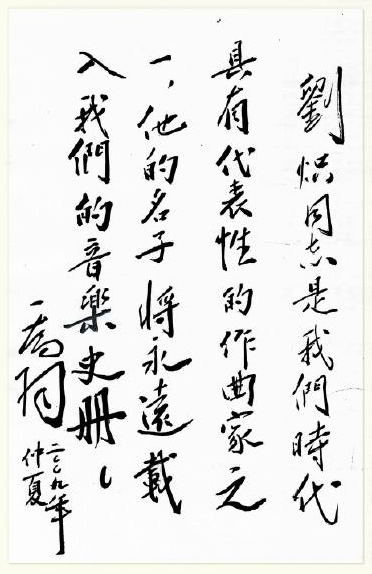 劉熾同志是我們時代
具有代表性的作曲家之
一，他的名子將永遠載
入我們的音樂史册。
喬羽
二〇〇九年
仲夏